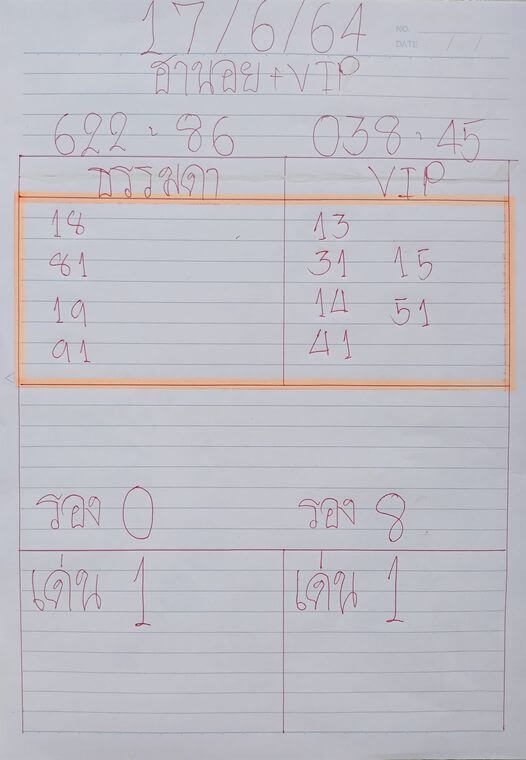 17/6/64
NO.
DATE / /
ฮานอย+VIP
622 · 86 038 · 45
ธรรมดา VIP
18 13
81 31 15
19 14 51
91 41
รอง 0 รอง 8
เด่น 1 เด่น 1